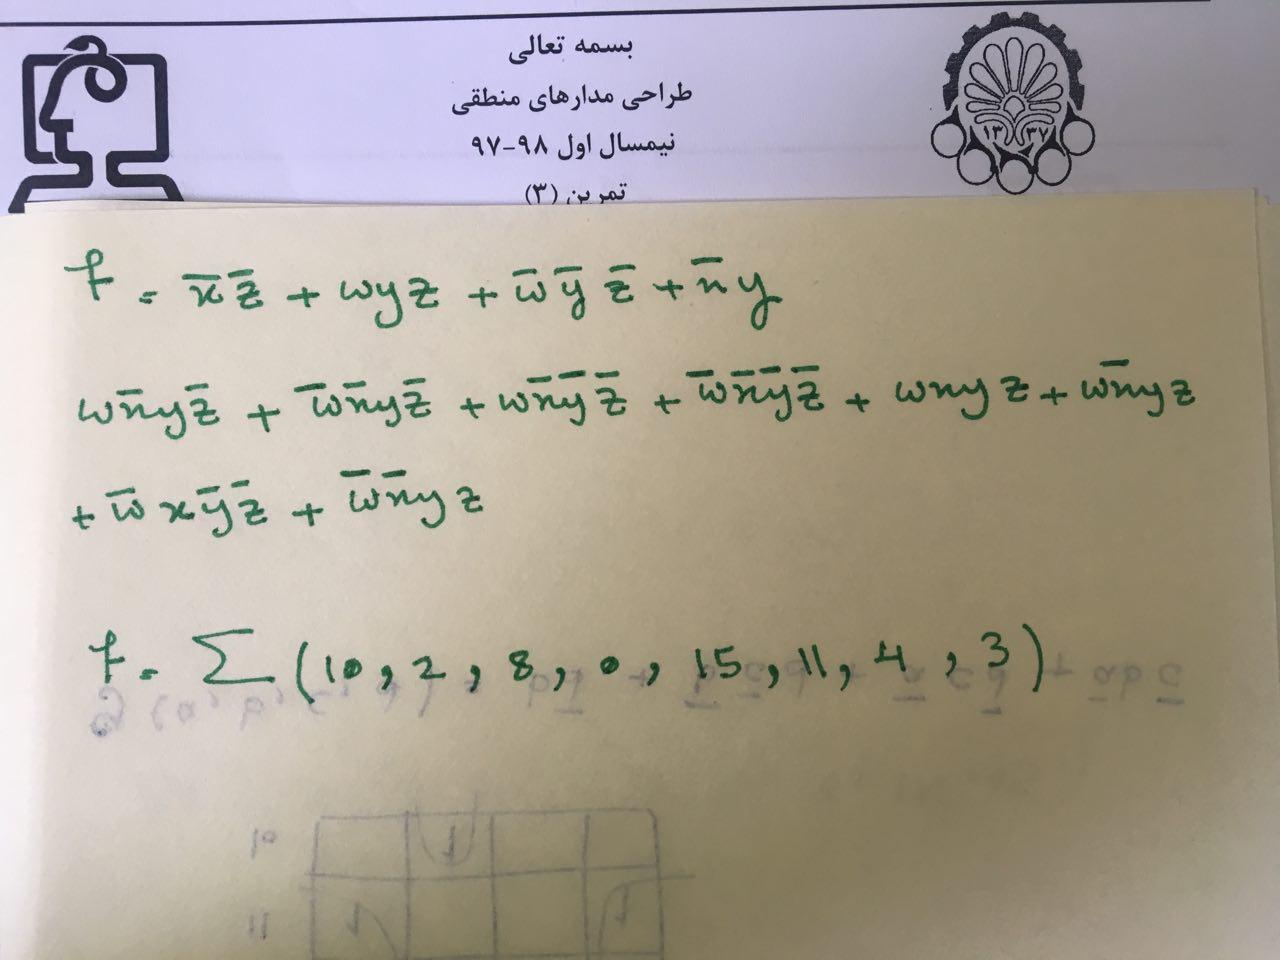 بسمه تعالی
طراحی مدارهای منطقی
نیمسال اول ۹۸-۹۷
تمرین (۳)
۱۳ ۳۷
f = x̅ z̅ + wyz + w̅ y̅ z̅ + x̅ y
wx̅yz̅ + w̅x̅yz̅ + wx̅y̅z̅ + w̅x̅y̅z̅ + wxyz + wx̅yz
+ w̅xy̅z̅ + w̅x̅yz
f = Σ (10, 2, 8, 0, 15, 11, 4, 3)